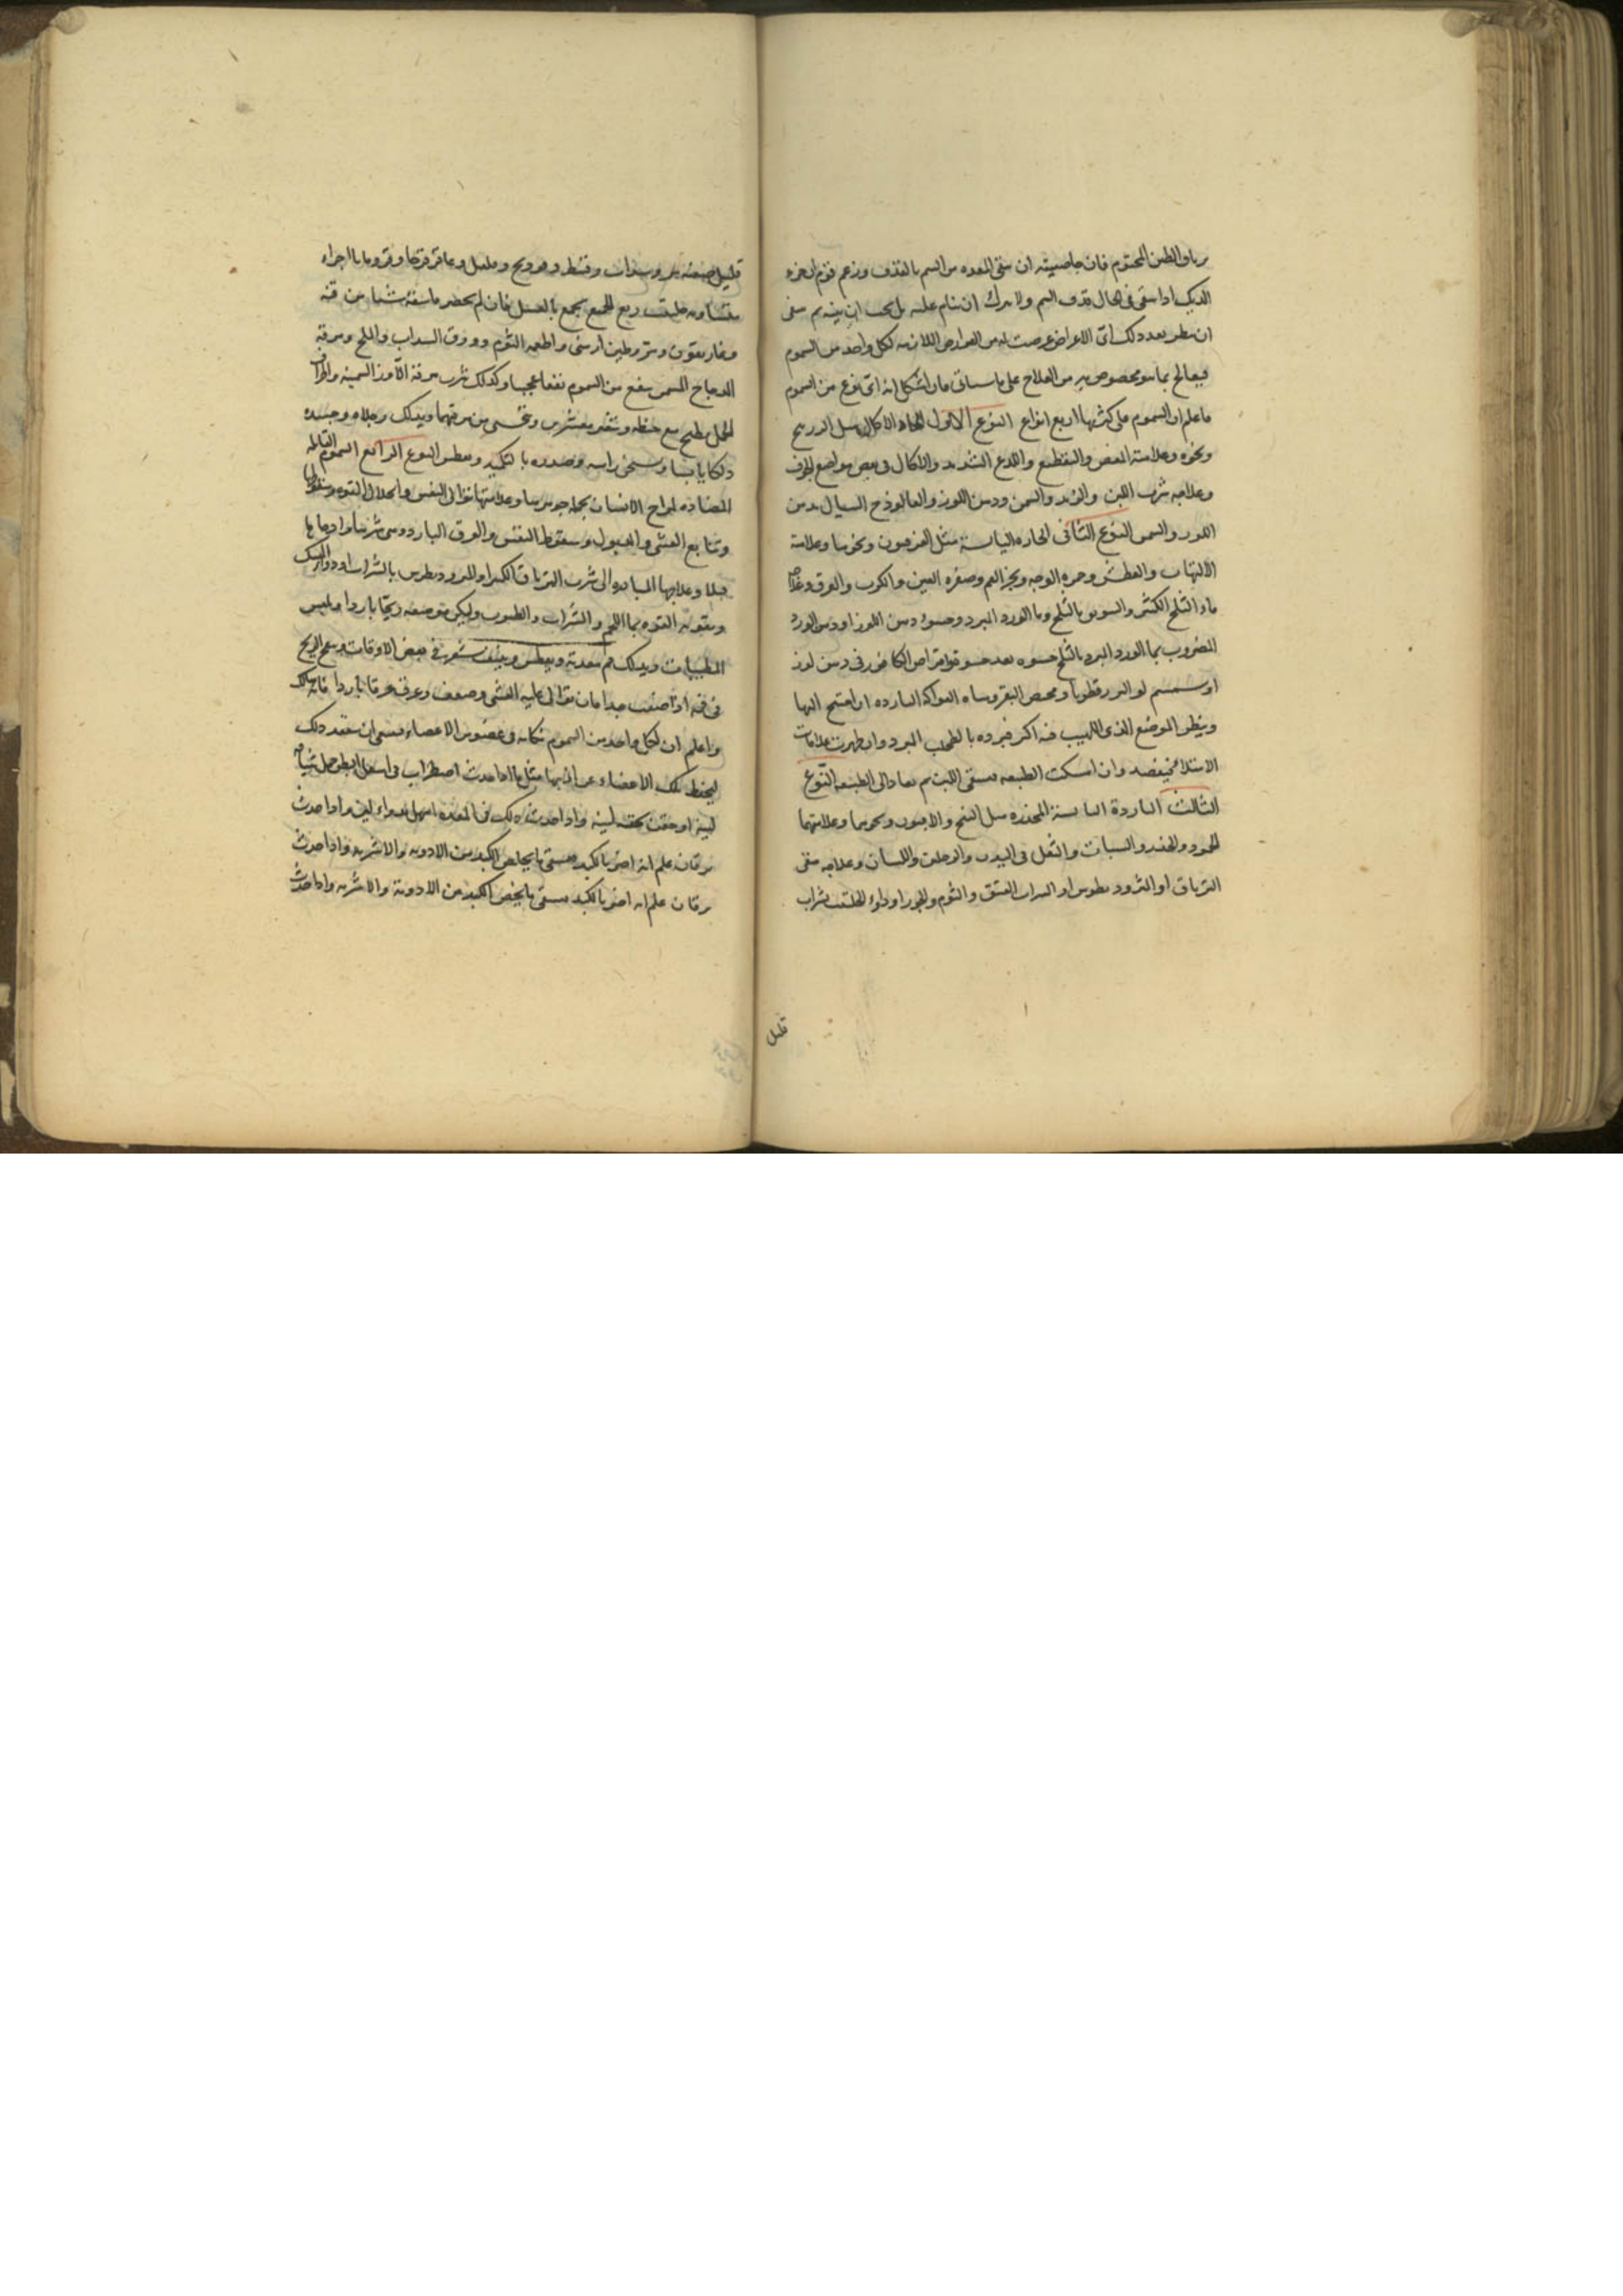 رياق الطين المختوم فان خاصيته ان ينقى المعده من السم بالقذف وزعم قوم ان خرء
الديك اذا سقى فى الحال قذف السم ولا يترك ان ينام عليه بل يجب ان ينبه ثم ينبغى
ان ينظر بعد ذلك اىّ الاعراض عرضت له من العوارض اللازمه لكل واحد من السموم
فيعالج بما هو مخصوص به من العلاج على ما سياتى فان اشكل انه اىّ نوع من السموم
فاعلم ان السموم على كثرتها اربع انواع النوع الاوّل الحاده الاكاله مثل الدراريح
ونحوه وعلامته المغص والتقطيع واللدع الشديد والاكال فى بعض مواضع الجوف
وعلاجه شرب اللبن والزبد والسمن ودهن اللوز والفالوذج السيال بدهن
اللوز والسمن النوع الثانى الحاره اليابسة مثل الفربيون ونحوها وعلامته
الالتهاب والعطش وحمرة الوجه وبخر الفم وصفره العين والكرب والعرق وعلاجه
ماء الثلج الكثير والسويق بالثلج وماء الورد المبرد وحسوه دهن اللوز او دهن الورد
المضروب بماء الورد المبرد بالثلج حسوه بعد حسوه واقراص الكافور فى دهن لوز
او سمسم لو البزرقطونا ومخيض البقر ومياه الفواكه البارده ان احتيج اليها
وينظر الموضع الذى اللهيب فيه اكثر فيرده بالطحلب المبرد وان ظهرت علامات
الامتلاء فيفصد وان امسكت الطبيعه يسقى اللبن ثم يعاد الى الطبيعه النّوع
الثالث الباردة اليابسة المخدره مثل البنج والافيون ونحوهما وعلامتهما
الجمود والخدر والسبات والثقل فى اليدين والرجلين واللسان وعلاجه يسقى
الترياق او المثروديطوس او الشراب العتيق والثوم والجوز او دواء الحلتيت بشراب
قليل
قليل صفته مر وسذاب وقسط وفودنج وفلفل وعاقرقرحا وقردمانا اجزاء
متساويه حلتيت ربع الجميع يجمع بالعسل فان لم يحضر ماسقه شيئا من قنه
وغاريقون ومر وطين ارمنى واطعمه الثوم وورق السداب والملح ومرقة
الدجاج المسمن ينفع من السموم نفعا عجيبا وكذلك شرب مرقة الاوز السمينه واطراف
الحمل يطبخ مع حنطه وشعير مقشرين وتحسى من مرقها ويدلك رجلاه وجسده
دلكا يابسا ويسخن راسه وصدره بالتكميد ويعطس النوع الرابع السموم القاتله
المضاده لمزاج الانسان بجمله جوهرها وعلامتها توالى النفس وانحلال القوه وسقوطها
وتتابع الغشى والذبول وسقوط النفس والعرق البارد وهى شرها وارداها
قبلا وعلاجها المباده الى شرب الترياق الكبير او المثروديطوس بالشراب او دواء المسك
وبتقوية القوه بماء اللحم والشراب والطيوب وليكن موضعه ريحا باردا ويلبس
المطيبات ويدلك فم معدته ويعطس وينتف شعره فى بعض الاوقات ويمج الريح
فى فيه اذا ضعف جدا فان توالى عليه الغشى وضعف وعرق عرقا باردا فانه هالك
واعلم ان لكل واحد من السموم نكايه فى عضو من الاعضاء فينبغى ان يتفقد ذلك
ليحفظ تلك الاعضاء عن اذيتها مثل ما اذا حدث اضطراب فى اسفل البطن حمل شيافه
لينه او حقن بحقنه لينه واذا حدث ذلك فى المعده اسهل بدواء لين واذا حدث
يرقان علم انه اضر بالكبد فيسقى ما يخص الكبد من الادويه والاشربه واذا حدث
يرقان علم انه اضر بالكبد فيسقى ما يخص الكبد من الادوية والاشربه واذا حدث